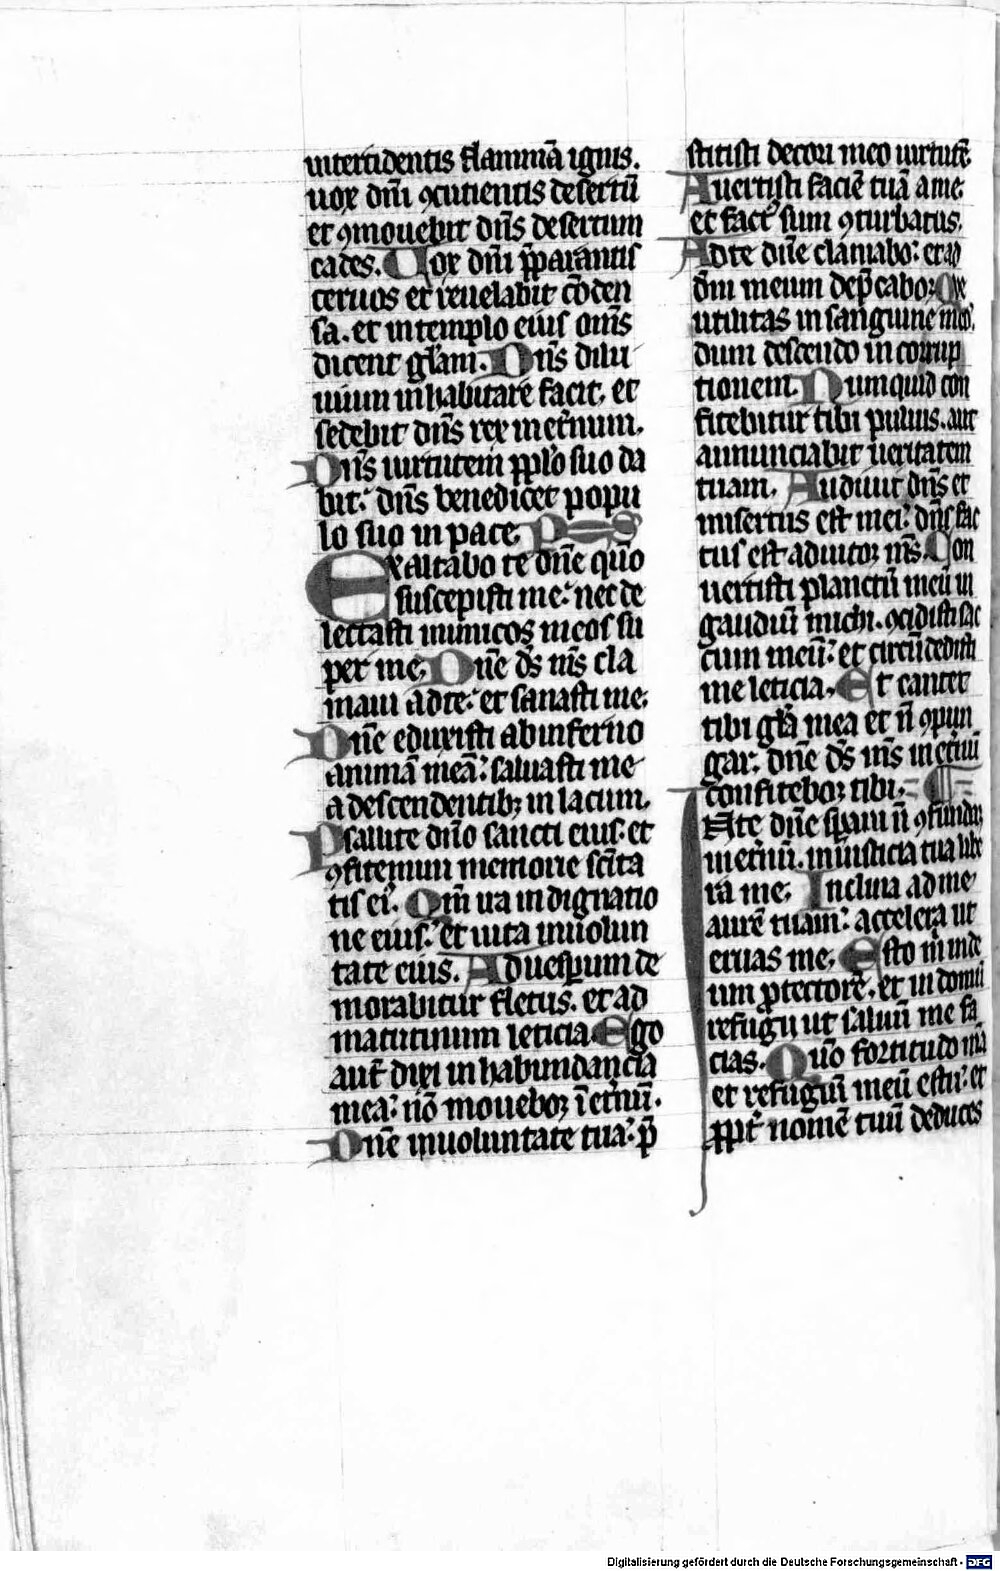 intercidentis flammā ignis.
uox dn̄i ꝯcutientis desertū
et ꝯmouebit dn̄s desertum
cades. Uox dn̄i p̄parantis
ceruos et reuelabit cōden
sa. et in templo eius om̄s
dicent gl̄am. Dn̄s dilu
uium inhabitare facit. et
sedebit dn̄s rex inet̄num.
Dn̄s uirtutem pplo suo da
bit. dn̄s benedicet popu
lo suo in pace. P S
Exaltabo te dn̄e qūo
suscepisti me. nec de
lectasti inimicos meos su
per me. Dn̄e ds̄ ms̄ cla
maui ad te. et sanasti me.
Dn̄e eduxisti ab inferno
animā meā. saluasti me
a descendentibꝫ in lacum.
Psallite dn̄o sancti eius. et
ꝯfitemini memorie sc̄ita
tis ei᷒. Qm̄ ira in dignatio
ne eius. et uita inuolun
tate eius. Ad uesꝑum de
morabitur fletus. et ad
matutinum leticia. Ego
aut̄ dixi in habundancia
mea. nō mouebor īet̄nū.
Dn̄e in uoluntate tua. p̄
stitisti decori meo uirtutē.
Auertisti faciē tuā a me.
et fact᷒ sum ꝯturbatus.
Ad te dn̄e clamabo. et ad
dm̄ meum dep̄cabor. Que
utilitas in sanguine meo.
dum descendo in corrup
tionem. Numquid con
fitebitur tibi puluis. aut
annunciabit ueritatem
tuam. Audiuit dn̄s et
misertus est mei. dn̄s fac
tus est adiutor ms̄. Con
uertisti planctū meū in
gaudiū michi. ꝯcidisti sac
cum meū. et circūdedisti
me leticia. Et cantet
tibi gl̄a mea et n̄ ꝯpun
gar. dn̄e ds̄ ms̄ inet̄nū
confitebor tibi.
In te dn̄e sꝑaui n̄ ꝯfundar
inet̄nū. in iusticia tua libe
ra me. Inclina ad me
aurē tuam. accelera ut
eruas me. Esto m̄ in de
um ꝓtectorē. et in domū
refugii ut saluū me fa
cias. Qūo fortitudo m̄a
et refugiū meū es tu. et
ꝓpt̄ nomē tuū deduces
Digitalisierung gefördert durch die Deutsche Forschungsgemeinschaft - DFG